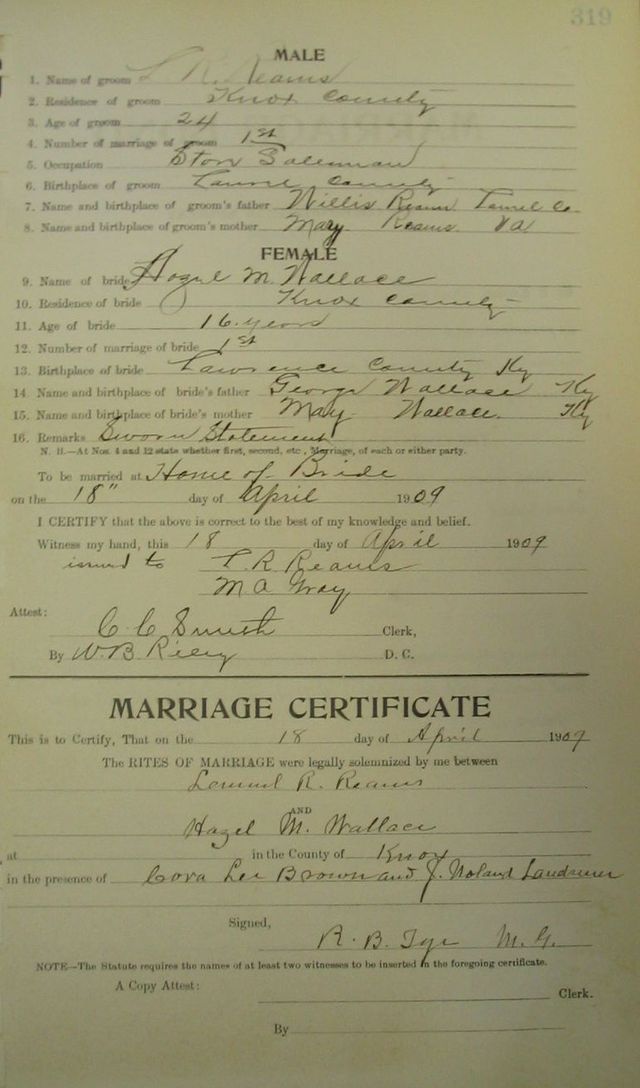 319
MALE
1. Name of groom L R. Reams
2. Residence of groom Knox County
3. Age of groom 24
4. Number of marriage of groom 1st
5. Occupation Store Salesman
6. Birthplace of groom Laurel County
7. Name and birthplace of groom's father Willis Reams Laurel Co
8. Name and birthplace of groom's mother Mary Reams Va
FEMALE
9. Name of bride Hazel M. Wallace
10. Residence of bride Knox County
11. Age of bride 16 years
12. Number of marriage of bride 1st
13. Birthplace of bride Lawrence County Ky
14 Name and birthplace of bride's father George Wallace Ky
15. Name and birthplace of bride's mother May Wallace. Ky
16. Remarks Sworn Statement
N. B.—At Nos. 4 and 12 state whether first, second, etc., Marriage, of each or either party.
To be married at Home of Bride
on the 18" day of April 1909
I CERTIFY that the above is correct to the best of my knowledge and belief.
Witness my hand, this 18 day of April 1909
issued to L. R Reams
M A Gray
Attest:
C C Smith Clerk,
By W. B Riley D. C.
MARRIAGE CERTIFICATE
This is to Certify, That on the 18 day of April 1909
The RITES OF MARRIAGE were legally solemnized by me between
Lemuel R. Reams
AND
Hazel M. Wallace
at in the County of Knox
in the presence of Cora Lee Brown and J. Noland
Signed,
R. B. Tye M. G.
NOTE—The Statute requires the names of at least two witnesses to be inserted in the foregoing certificate.
A Copy Attest: Clerk.
By